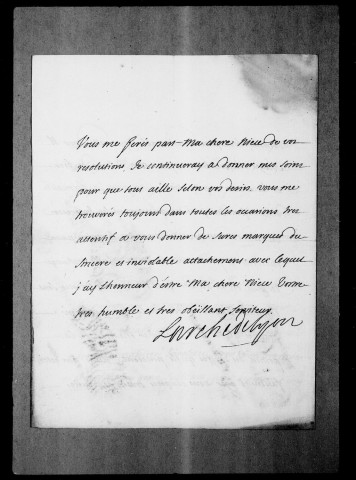 Vous me ferés part Ma chere Niece de vos
resolutions, Je continueray a donner mes soins
pour que tout aille selon vos desirs. vous me
trouverés toujours dans toutes les occasions tres
attentif a vous donner de sures marques du
sincere et inviolable attachement avec lequel
j'ay l'honneur d'être Ma chere Niece Votre
tres humble et tres obeissant serviteur.
L'arch. de Lyon